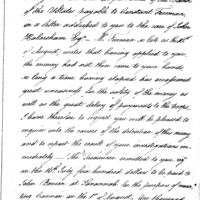 of the Estate payable to Lieutenant Freeman,
in a letter addressed to you to the care of John
Habersham Esqr — Mr. Freeman as late as the 18th
of August, writes that having applied to you
the money had not then come to your hands
so long a time having elapsed has occasioned
great uneasiness for the safety of the money
as well as the great delay of payments to the troops
I have therefore to request you will be pleased to
inquire into the causes of the detention of the money
and to report the result of your investigations im-
mediately — The Treasurer remitted to you, viz
on the 16th July four hundred dollars to be paid to
John Benson at Savannah for the purpose of
on the 1st of August, one thousand